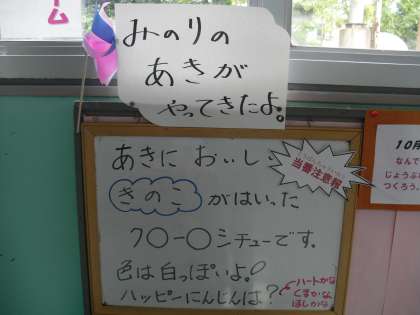 ーム
みのりの
あきが
やってきたよ。
あきに おいし
当番注意報
きのこ がはいった
ク〇ー〇シチューです。
色は白っぽいよ!
ハッピーにんじんは?
ハートかな
くまかな
ほしかな
10月
なんで
じょうぶな
つくろう。